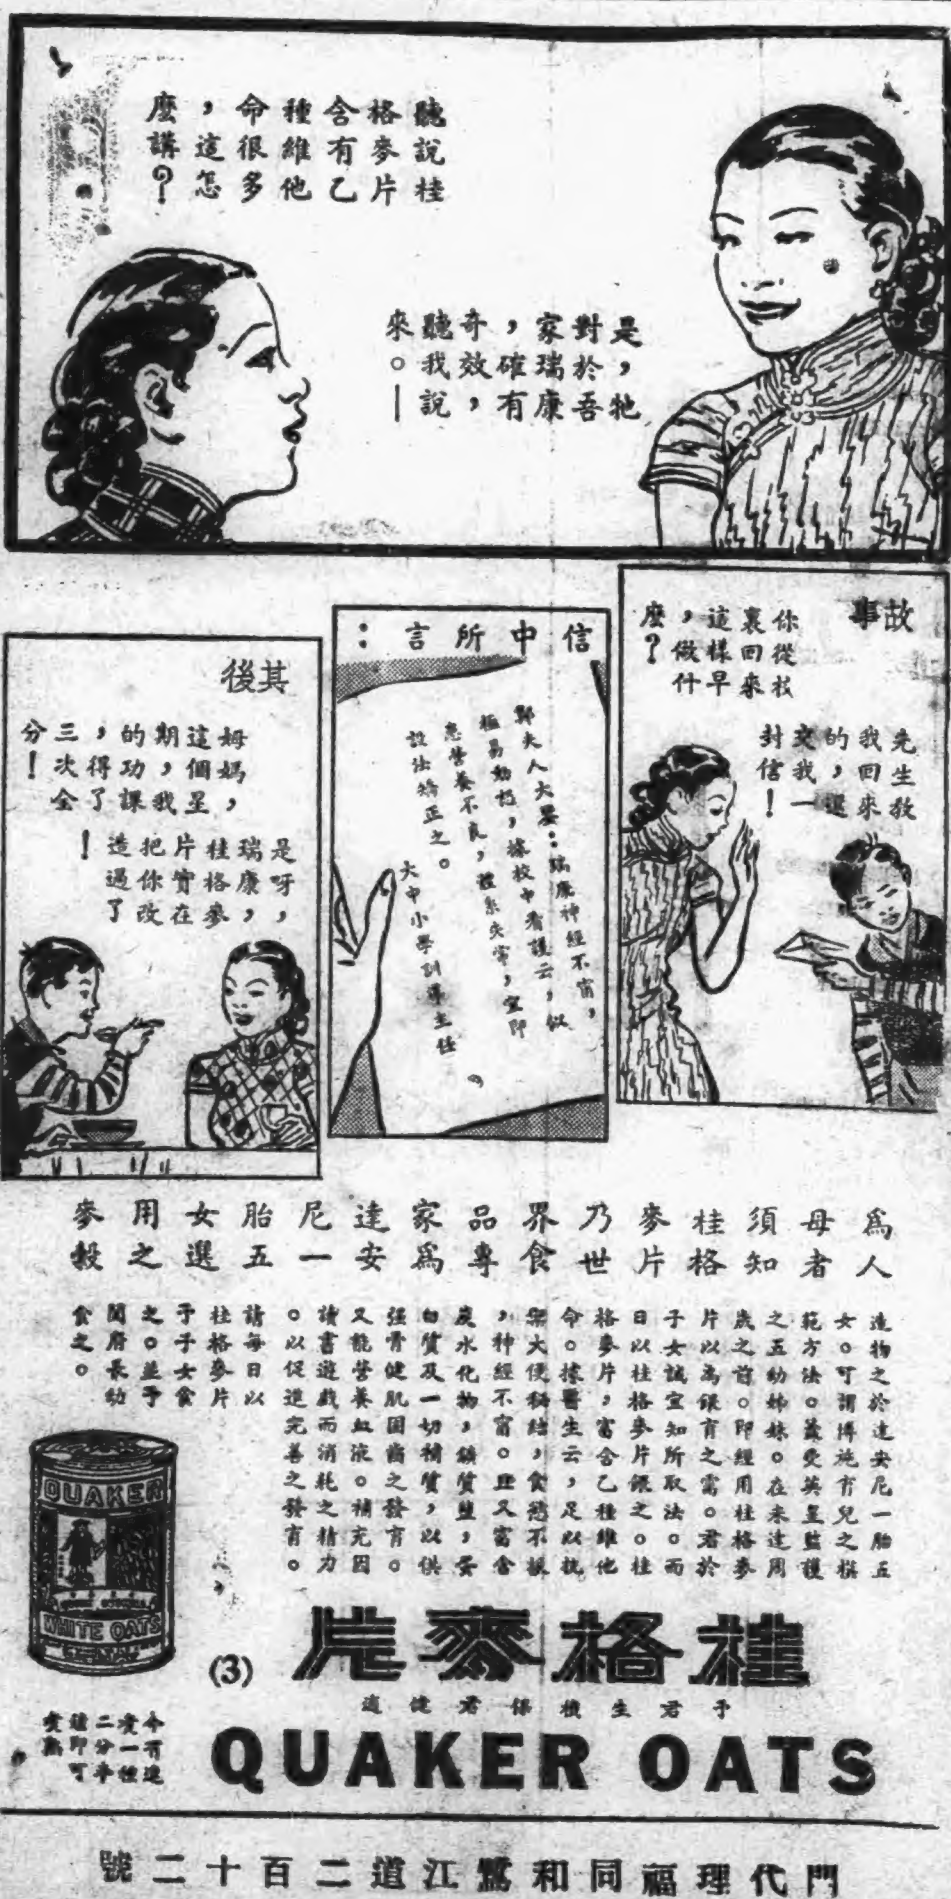 聽說桂
格麥片
含有乙
種維他
命很多
，這怎
麽講？
是，牠
對於吾
家瑞康
，確有
奇效，
聽我說
來。—
故事
你從校
裏回來
這樣早
，做什
麽？
先生教
我回來
的，還
交我一
封信！
信中所言：
郭夫人大鑒：瑞康神經不甯，
極易動怒，據校中看護云，似
患營養不良，體系失常，宜即
設法矯正之。
大中小學訓導主任
其後
姆媽，
這個星
期，我
的功課
，得了
三次全
分！
是呀，
瑞康，
桂格麥
片實在
把你改
造過了
！
爲人
母者
須知
桂格
麥片
乃世
界食
品專
家爲
達安
尼一
胎五
女選
用之
麥穀
造物之於達安尼一胎五
女。可謂博施育兒之模
範方法。蓋受英皇監護
之五幼姊妹。在未達周
歲之前。即經用桂格麥
片以為餵育之需。君於
子女誠宜知所取法。而
日以桂格麥片餵之。桂
格麥片，富含乙種維他
命。據醫生云，足以抗
禦大便秘結，食慾不振
，神經不甯。且又富含
炭水化物，鑛質鹽，蛋
白質及一切補質，以供
强骨健肌固齒之發育。
又能營養血液。補充因
讀書遊戲而消耗之精力
。以促進完善之發育。
請每日以
桂格麥片
予子女食
之。並予
閤府長幼
食之。
QUAKER
WHITE OATS
桂格麥片
(3)
予君生機保君健適
QUAKER OATS
今有速
煑一種
二分半
鐘即可
煑熟
門代理福同和鷺江道二百十二號